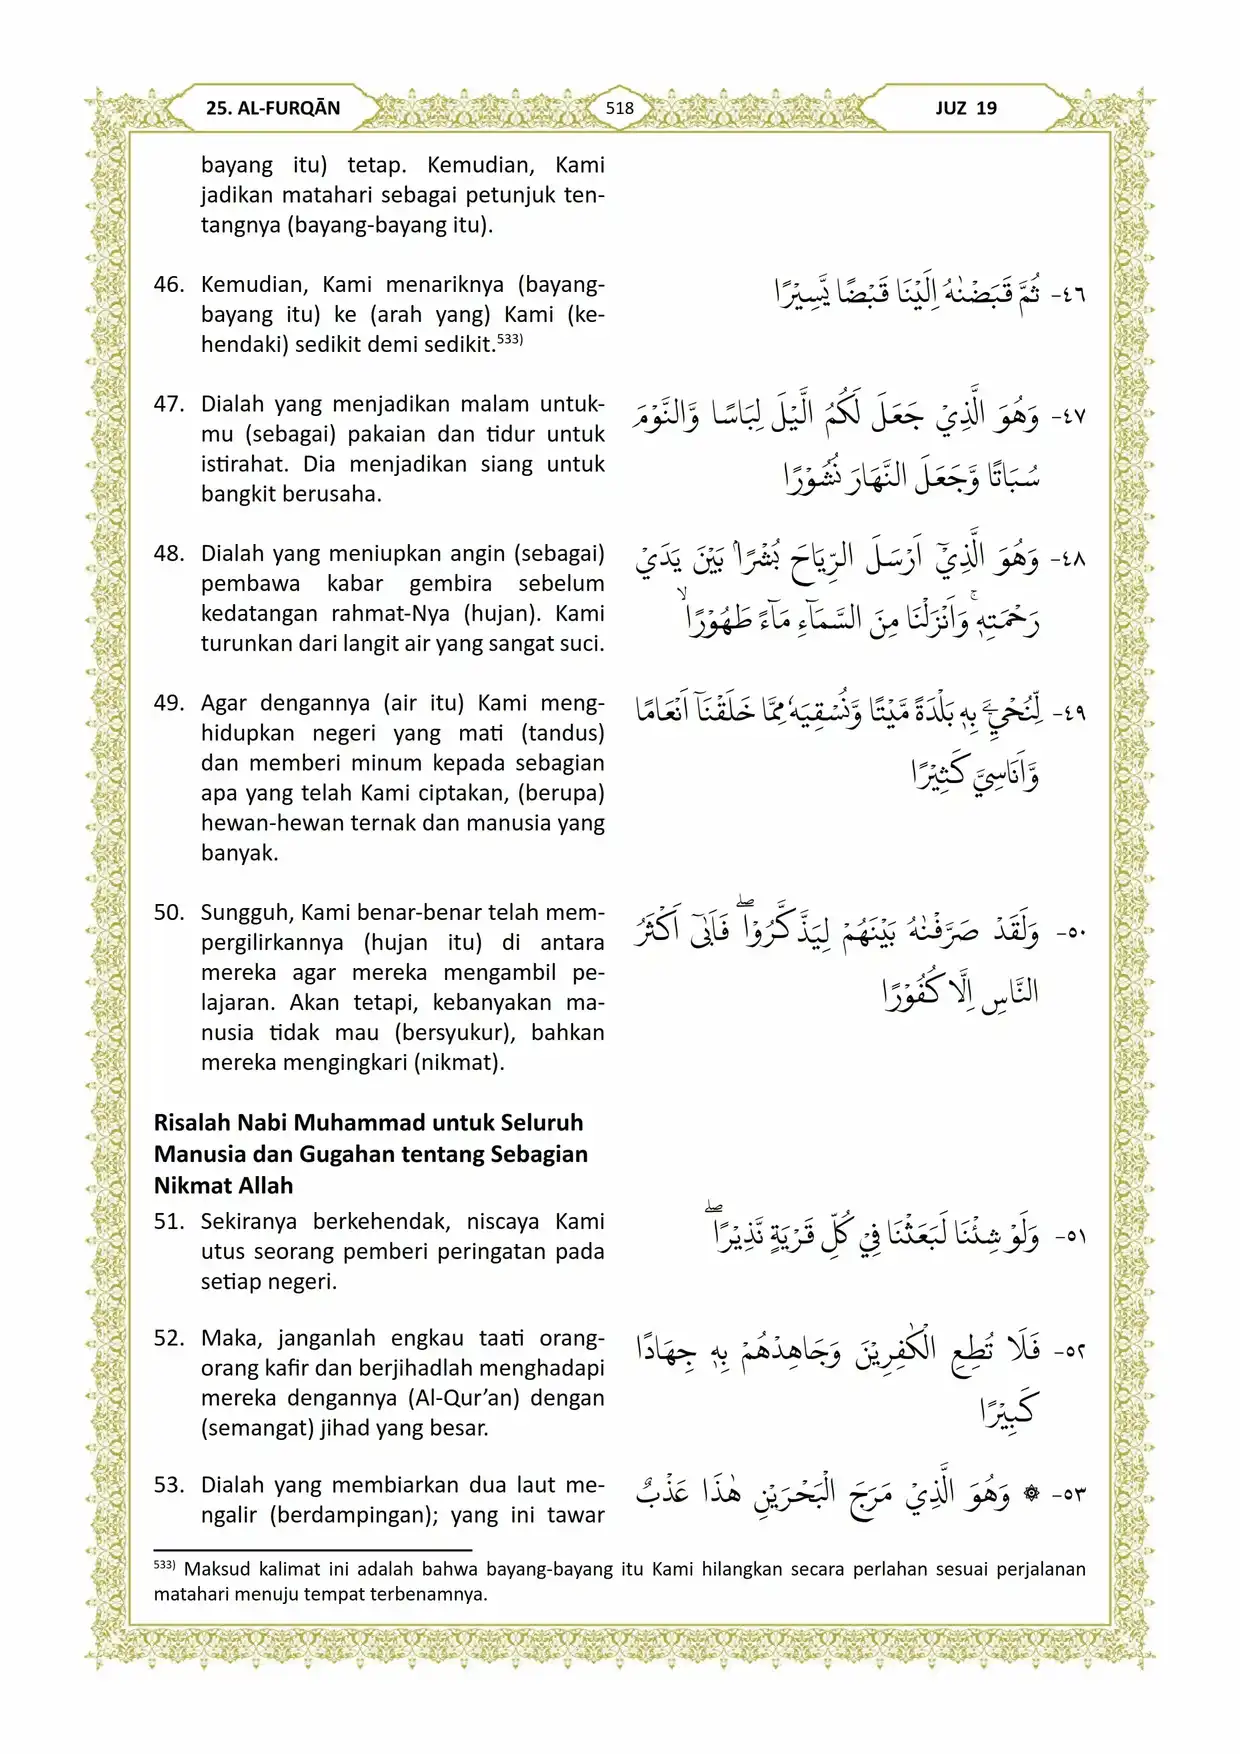 25. AL-FURQĀN
518
JUZ 19
bayang itu) tetap. Kemudian, Kami
jadikan matahari sebagai petunjuk ten-
tangnya (bayang-bayang itu).
46. Kemudian, Kami menariknya (bayang-
bayang itu) ke (arah yang) Kami (ke-
hendaki) sedikit demi sedikit.533)
٤٦- ثُمَّ قَبَضْنٰهُ اِلَيْنَا قَبْضًا يَّسِيْرًا
47. Dialah yang menjadikan malam untuk-
mu (sebagai) pakaian dan tidur untuk
istirahat. Dia menjadikan siang untuk
bangkit berusaha.
٤٧- وَهُوَ الَّذِيْ جَعَلَ لَكُمُ الَّيْلَ لِبَاسًا وَّالنَّوْمَ
سُبَاتًا وَّجَعَلَ النَّهَارَ نُشُوْرًا
48. Dialah yang meniupkan angin (sebagai)
pembawa kabar gembira sebelum
kedatangan rahmat-Nya (hujan). Kami
turunkan dari langit air yang sangat suci.
٤٨- وَهُوَ الَّذِيْٓ اَرْسَلَ الرِّيَاحَ بُشْرًاۢ بَيْنَ يَدَيْ
رَحْمَتِهٖۚ وَاَنْزَلْنَا مِنَ السَّمَاۤءِ مَاۤءً طَهُوْرًاۙ
49. Agar dengannya (air itu) Kami meng-
hidupkan negeri yang mati (tandus)
dan memberi minum kepada sebagian
apa yang telah Kami ciptakan, (berupa)
hewan-hewan ternak dan manusia yang
banyak.
٤٩- لِّنُحْيِ َۧ بِهٖ بَلْدَةً مَّيْتًا وَّنُسْقِيَهٗ مِمَّا خَلَقْنَآ اَنْعَامًا
وَّاَنَاسِيَّ كَثِيْرًا
50. Sungguh, Kami benar-benar telah mem-
pergilirkannya (hujan itu) di antara
mereka agar mereka mengambil pe-
lajaran. Akan tetapi, kebanyakan ma-
nusia tidak mau (bersyukur), bahkan
mereka mengingkari (nikmat).
٥٠- وَلَقَدْ صَرَّفْنٰهُ بَيْنَهُمْ لِيَذَّكَّرُوْاۖ فَاَبٰىٓ اَكْثَرُ
النَّاسِ اِلَّا كُفُوْرًا
Risalah Nabi Muhammad untuk Seluruh
Manusia dan Gugahan tentang Sebagian
Nikmat Allah
51. Sekiranya berkehendak, niscaya Kami
utus seorang pemberi peringatan pada
setiap negeri.
٥١- وَلَوْ شِئْنَا لَبَعَثْنَا فِيْ كُلِّ قَرْيَةٍ نَّذِيْرًاۖ
52. Maka, janganlah engkau taati orang-
orang kafir dan berjihadlah menghadapi
mereka dengannya (Al-Qur’an) dengan
(semangat) jihad yang besar.
٥٢- فَلَا تُطِعِ الْكٰفِرِيْنَ وَجَاهِدْهُمْ بِهٖ جِهَادًا
كَبِيْرًا
53. Dialah yang membiarkan dua laut me-
ngalir (berdampingan); yang ini tawar
٥٣- ۞ وَهُوَ الَّذِيْ مَرَجَ الْبَحْرَيْنِ هٰذَا عَذْبٌ
533) Maksud kalimat ini adalah bahwa bayang-bayang itu Kami hilangkan secara perlahan sesuai perjalanan
matahari menuju tempat terbenamnya.